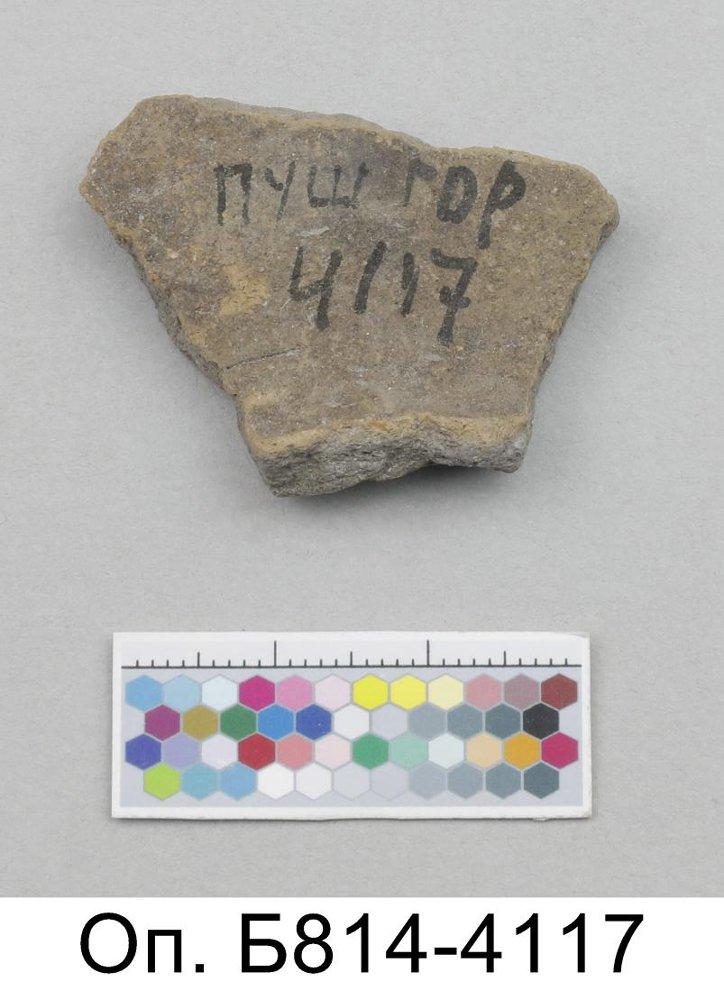 ПУШ ГОР
4117
Оп. Б814-4117